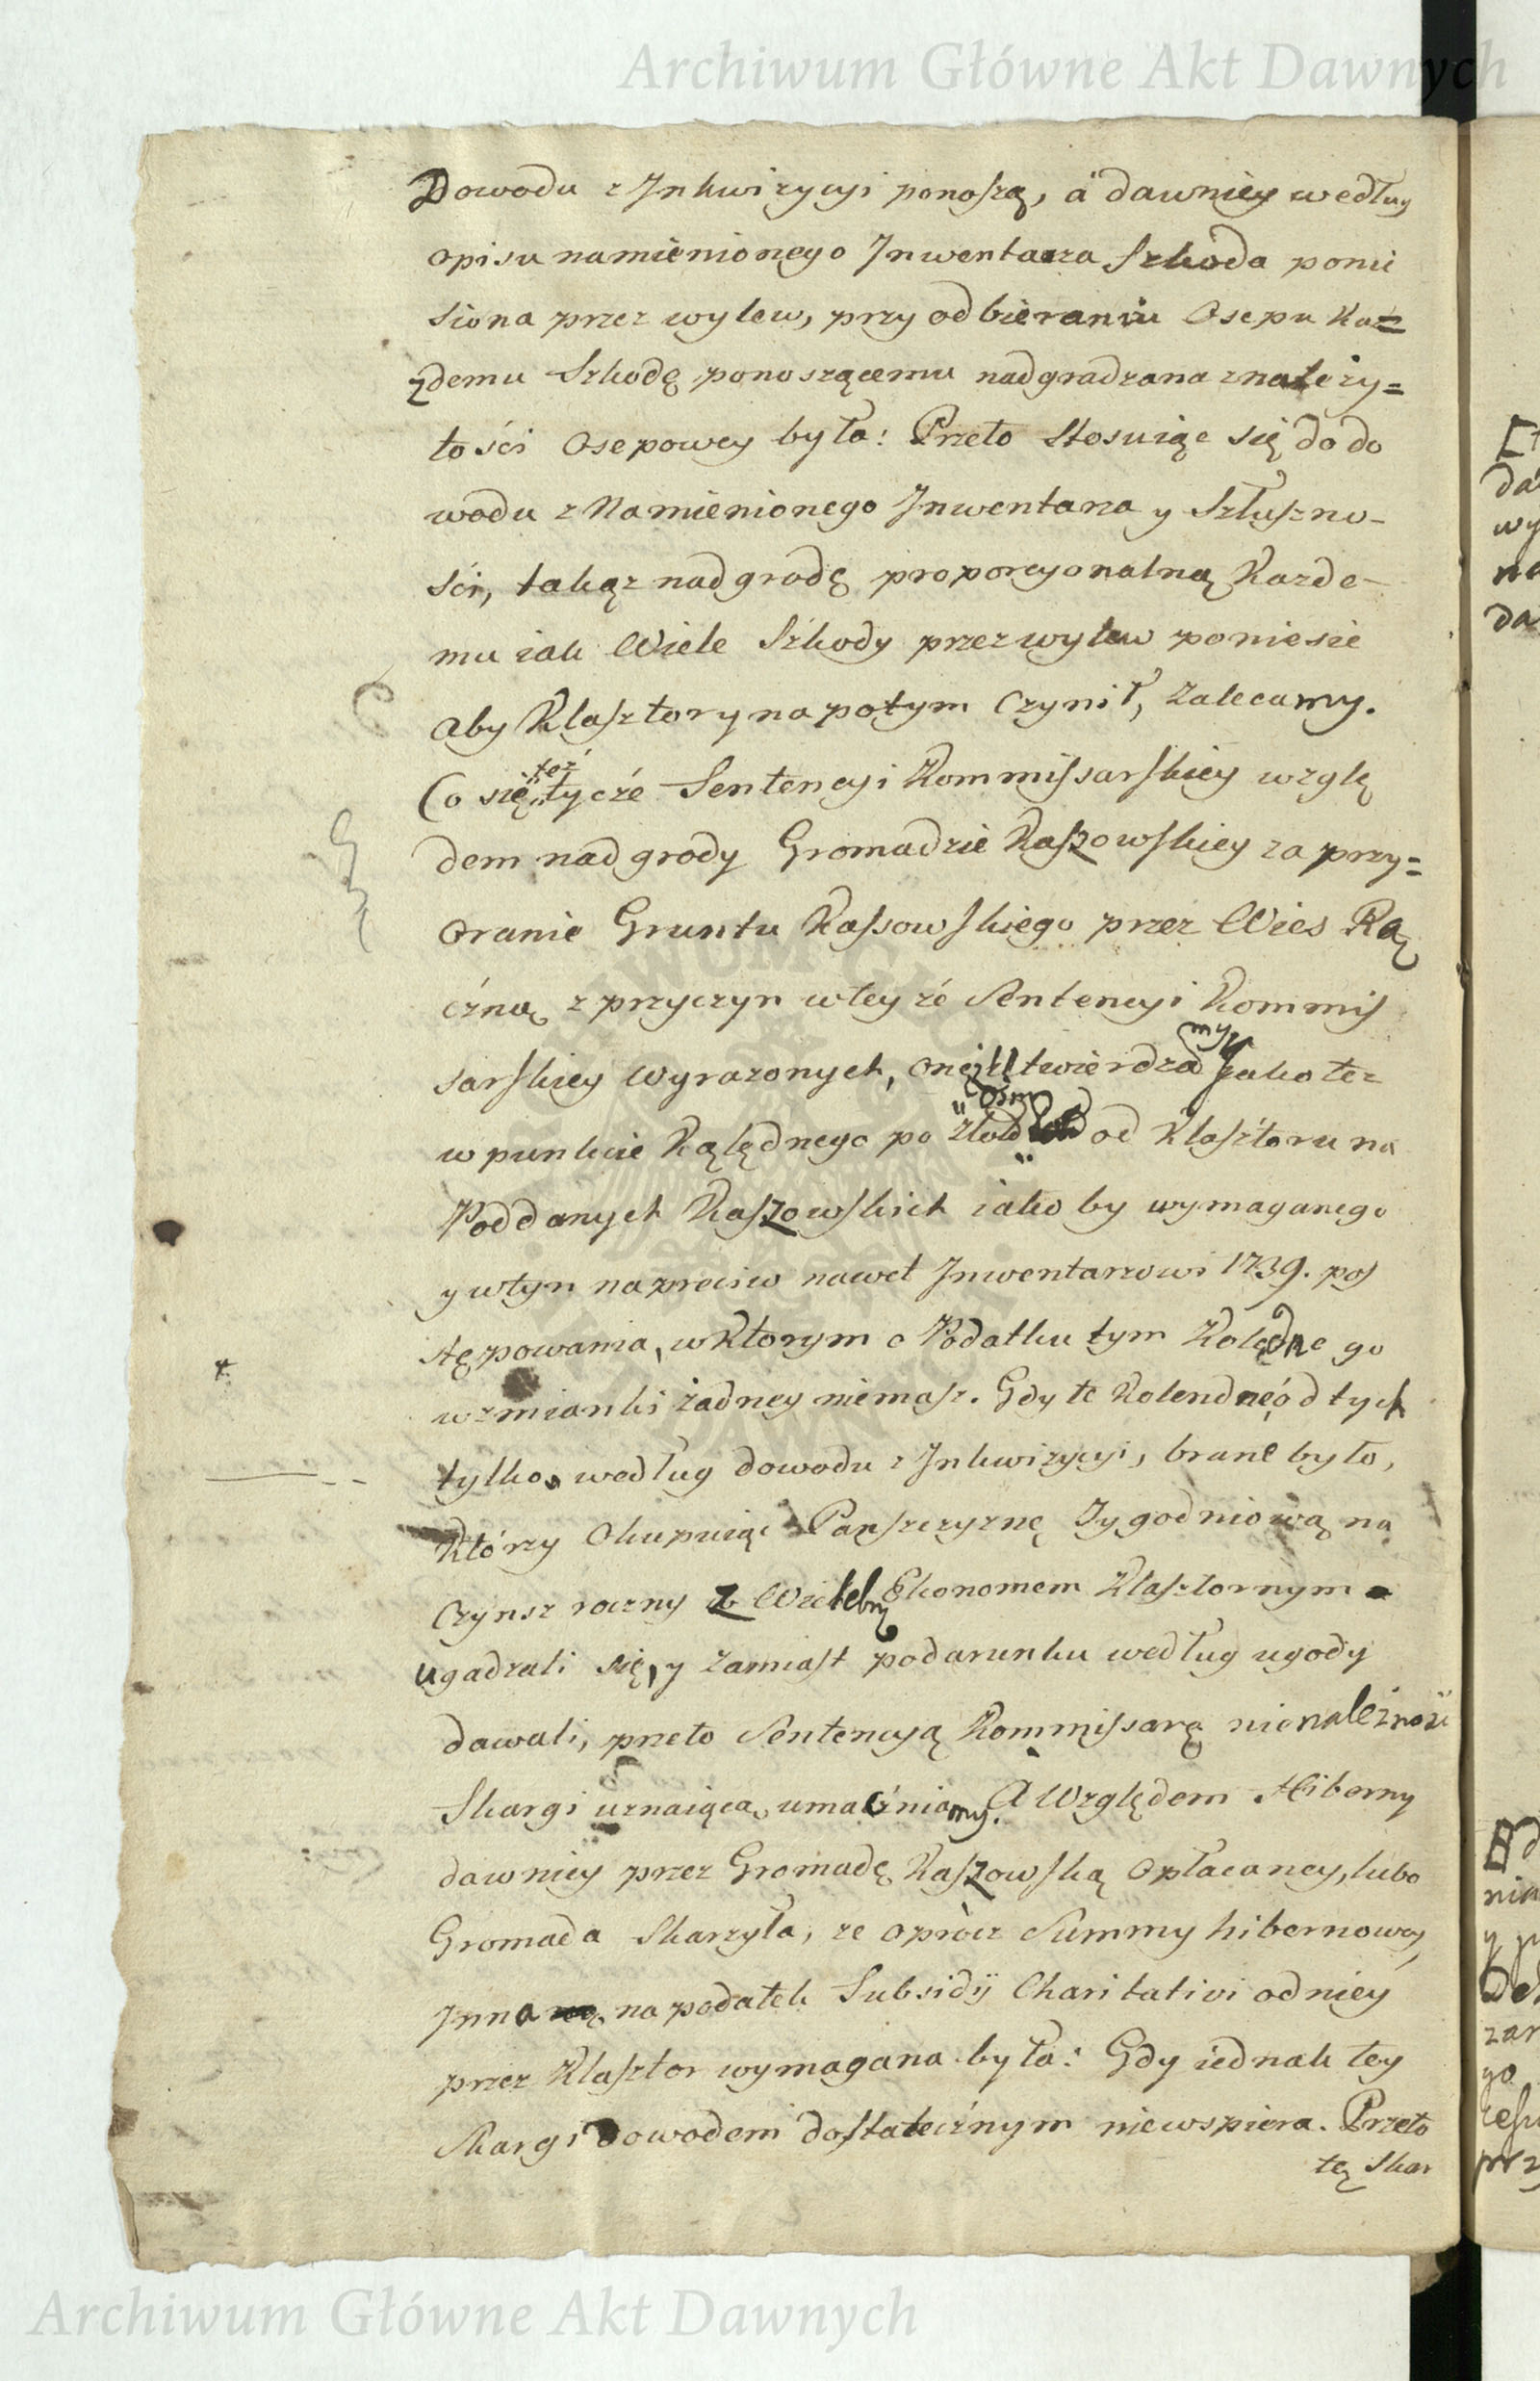 Archiwum Główne Akt Dawnych
Dowodu z Jnkwizycyi ponoszą, a dawniey według
opisu namienionego Jnwentarza szkoda ponie
siona przez wylew, przy odbieraniu Osepu Każ=
żdemu Szkodę ponoszącemu nadgradzana z należy=
tości Osepowey była: Przeto stosuiąc się do do
wodu z Namienionego Jnwentarza y Szłuszno-
ści, takąż nadgrodę proporcyonalną Kazde-
mu iak Wiele Szkody przez wylew poniesie
aby Klasztory napotym Czynił, zalecamy.
Co się też tycze Sentencyi Kommissarskiey wzglę
dem nadgrody Gromadzie Kaszowskiey za przy=
oranie Gruntu Kassowskiego przez Wies Rą
czną z przyczyn w teyże Sentencyi Kommis
sarskiey wyrazonych, onęż utwierdzamy jako tez
w punkcie Kolędnego po od Klasztoru na
Poddanych Kaszowskich iako by wymaganego
y w tym naprzeciw nawet Jnwentarzowi 1739. pos
stępowania, w Ktorym o Podatku tym Kolędnego
wzmianki żadney niemasz. Gdy te Kolendne od tych
tylko, według dowodu z Jnkwizycyi, brane było,
Którzy Okupuiąc Pańszczyznę Tygodniową na
Czynsz roczny z Wielebnę Ekonomem Klasztornym
ugadzali się, y zamiast podarunku według ugody
dawali, przeto Sentencyą Kommissarą nienależność
Skargi uznaiącą, umacniamy. A Względem Hiberny
dawniey przez Gromadę Kaszowską Opłacaney, lubo
Gromada Skarzyła, ze oprócz Summy hibernowey,
Jnna na podatek Subsidij Charitativi od niey
przez Klasztor wymagana była: Gdy iednak tey
Skargi Dowodem dostatecznym niewspiera. Przeto
tę Skar
Archiwum Główne Akt Dawnych